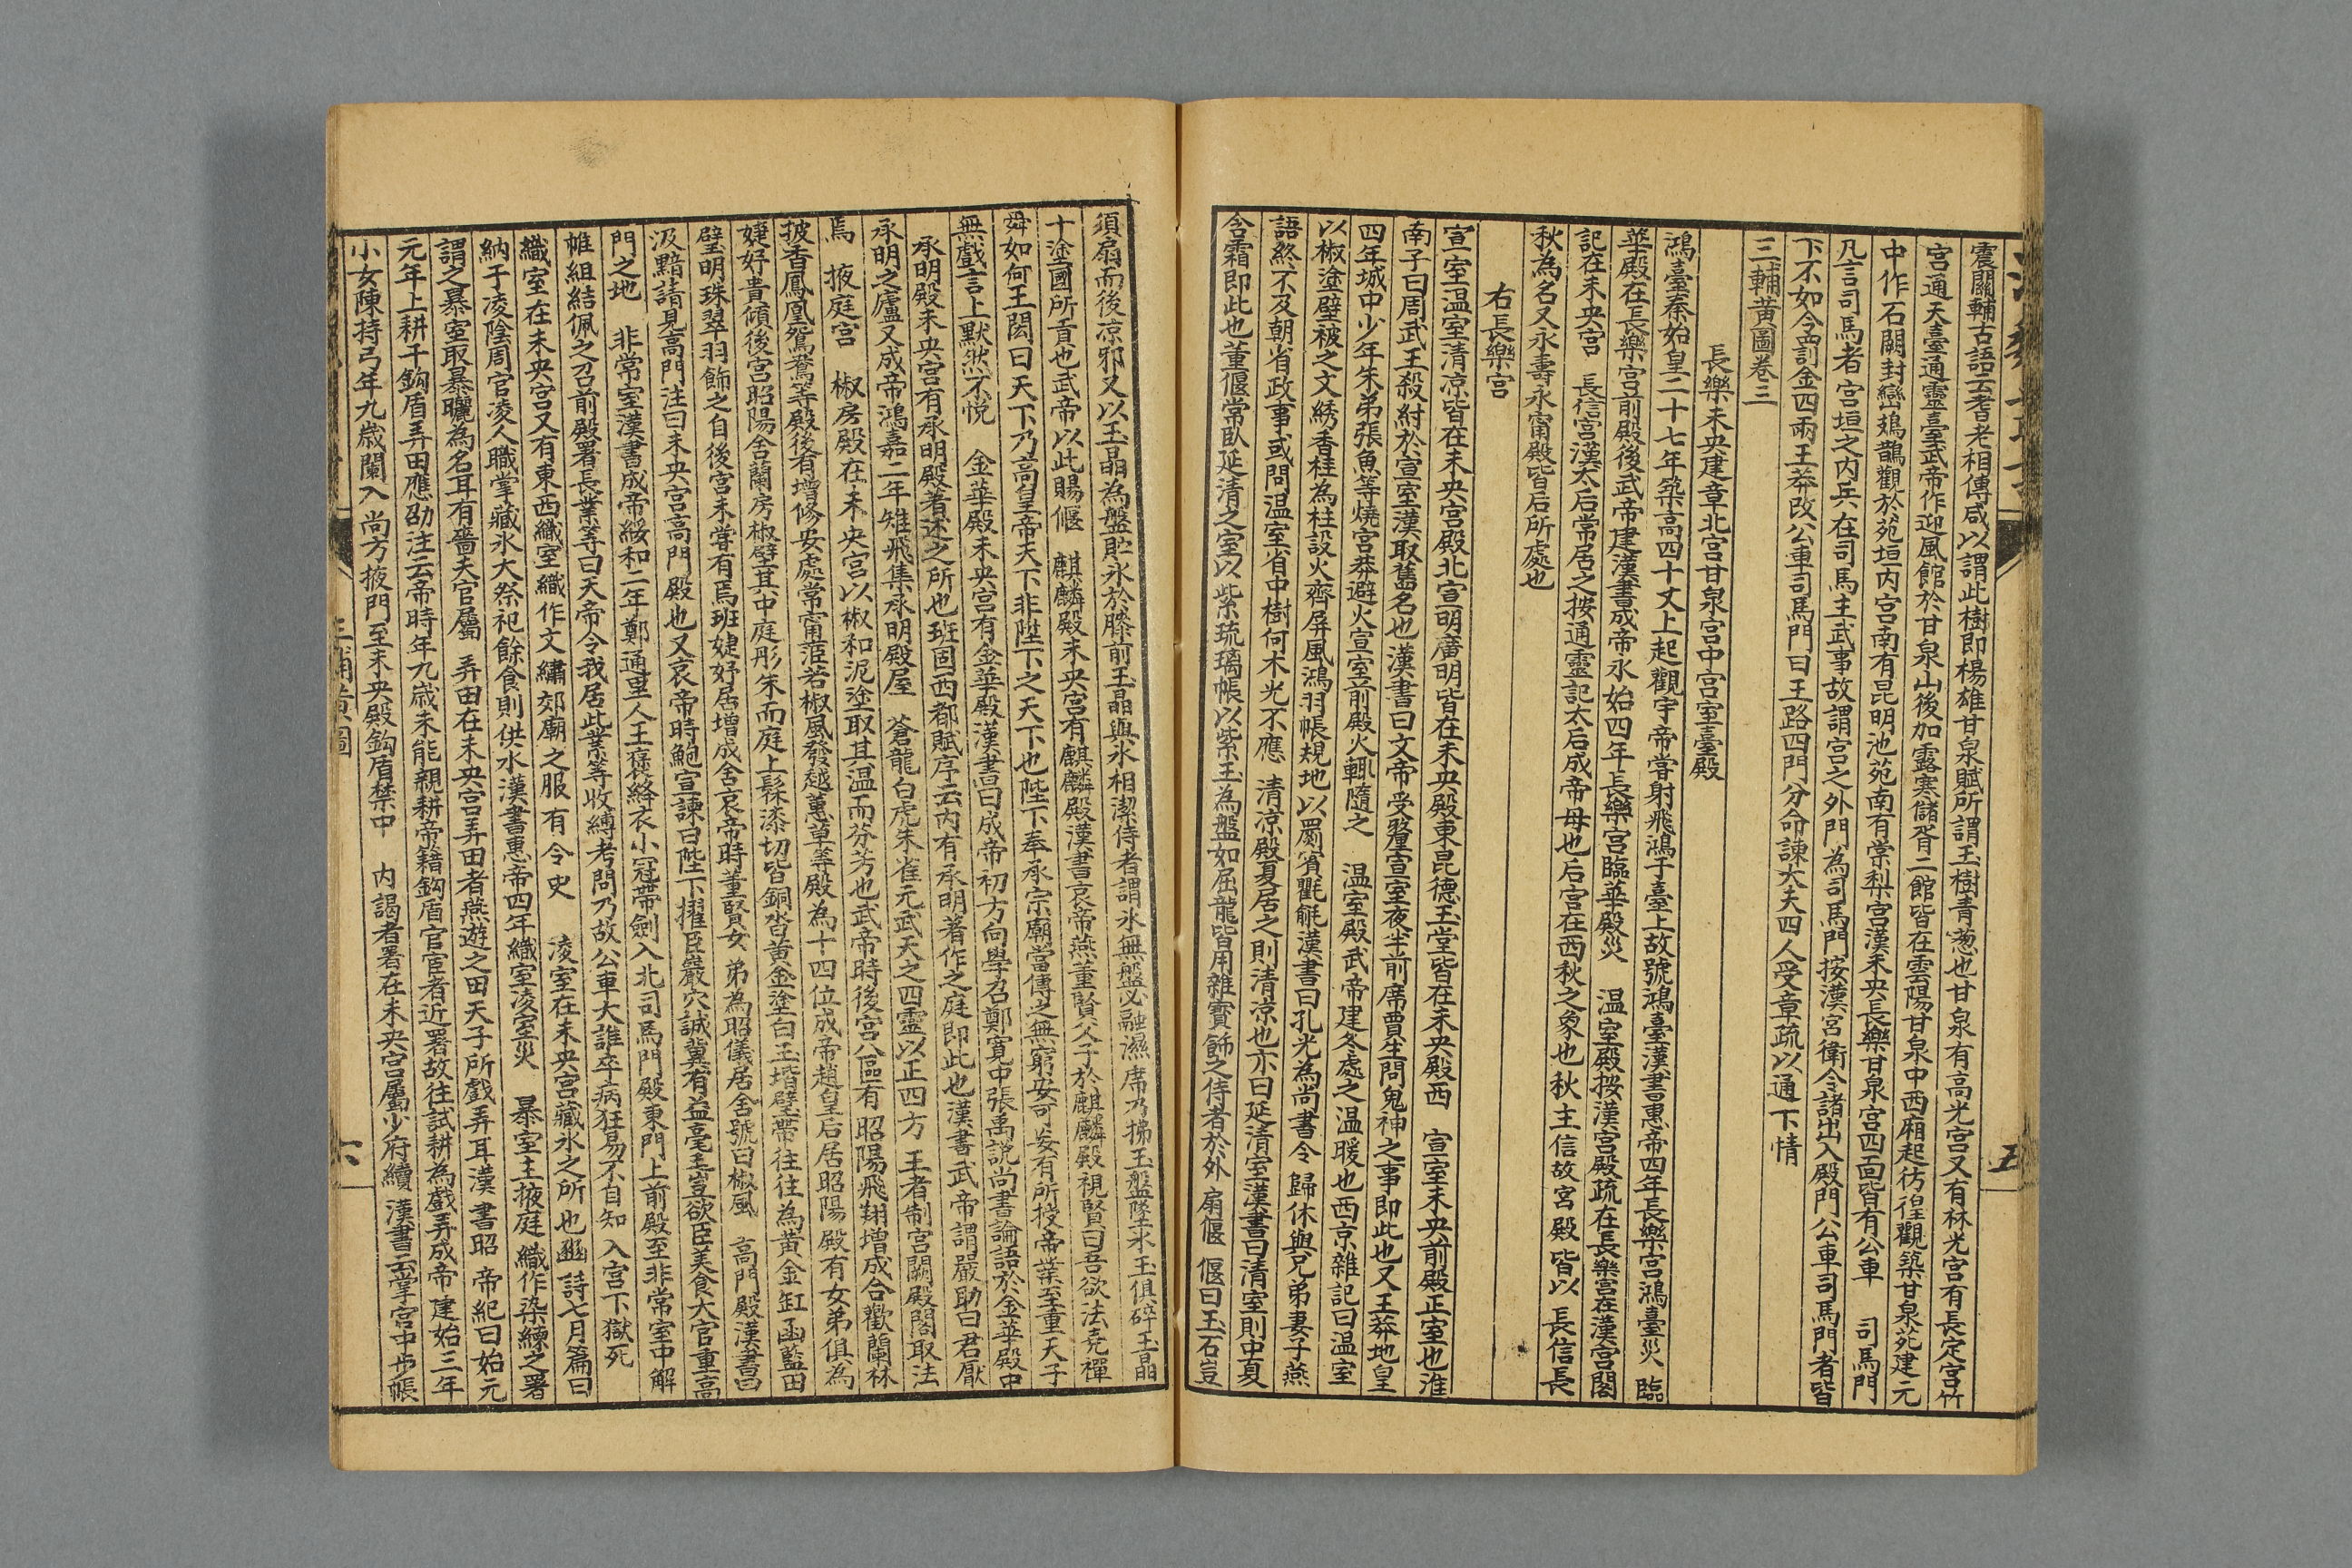 震關輔古語云耆老相傳咸以謂此樹即楊雄甘泉賦所謂玉樹青葱也甘泉有高光宮又有林光宮有長定宮竹
宮通天臺通靈臺武帝作迎風館於甘泉山後加露寒儲胥二館皆在雲陽甘泉中西廂起彷徨觀築甘泉苑建元
中作石闕封巒鳷鵲觀於苑垣内宮南有昆明池苑南有棠梨宮漢未央長樂甘泉宮四面皆有公車　司馬門
凡言司馬者宮垣之内兵在司馬主武事故謂宮之外門為司馬門按漢宮衛令諸出入殿門公車司馬門者皆
下不如令罰金四兩王莽改公車司馬門曰王路四門分命諫大夫四人受章疏以通下情
三輔黃圖卷三
長樂未央建章北宮甘泉宮中宮室臺殿
鴻臺秦始皇二十七年築高四十丈上起觀宇帝嘗射飛鴻于臺上故號鴻臺漢書惠帝四年長樂宮鴻臺災　臨
華殿在長樂宮前殿後武帝建漢書成帝永始四年長樂宮臨華殿災　温室殿按漢宮殿疏在長樂宮在漢宮閣
記在未央宮　長信宮漢太后常居之按通靈記太后成帝母也后宮在西秋之象也秋主信故宮殿皆以長信長
秋為名又永壽永甯殿皆后所處也
右長樂宮
宣室温室清凉皆在未央宮殿北宣明廣明皆在未央殿東昆德玉堂皆在未央殿西　宣室未央前殿正室也淮
南子曰周武王殺紂於宣室漢取舊名也漢書曰文帝受釐宣室夜半前席賈生問鬼神之事即此也又王莽地皇
四年城中少年朱弟張魚等燒宮莽避火宣室前殿火輒隨之　温室殿武帝建冬處之温暖也西京雜記曰温室
以椒塗壁被之文綉香桂為柱設火齊屏風鴻羽帳規地以罽賓氍毹漢書曰孔光為尚書令歸休與兄弟妻子燕
語終不及朝省政事或問温室省中樹何木光不應　清凉殿夏居之則清凉也亦曰延清室漢書曰清室則中夏
含霜即此也董偃常臥延清之室以紫琉璃帳以紫玉為盤如屈龍皆用雜寶飾之侍者於外扇偃偃曰玉石豈
須扇而後凉邪又以玉晶為盤貯氷於膝前玉晶與氷相潔侍者謂氷無盤必融濕席乃拂玉盤墜氷玉俱碎玉晶
十塗國所貢也武帝以此賜偃　麒麟殿未央宮有麒麟殿漢書哀帝燕董賢父子於麒麟殿視賢曰吾欲法堯禪
舜如何王閎曰天下乃高皇帝天下非陛下之天下也陛下奉承宗廟當傳之無窮安可妄有所授帝業至重天子
無戲言上默然不悦　金華殿未央宮有金華殿漢書曰成帝初方向學召鄭寬中張禹説尚書論語於金華殿中
承明殿未央宮有承明殿著述之所也班固西都賦序云内有承明著作之庭即此也漢書武帝謂嚴助曰君厭
承明之廬又成帝鴻嘉二年雉飛集承明殿屋　蒼龍白虎朱雀元武天之四靈以正四方王者制宮闕殿閣取法
焉　掖庭宮　椒房殿在未央宮以椒和泥塗取其温而芬芳也武帝時後宮八區有昭陽飛翔增成合歡蘭林
披香鳳凰鴛鴦等殿後有增修安處常甯茝若椒風發越蕙草等殿為十四位成帝趙皇后居昭陽殿有女弟俱為
婕妤貴傾後宮昭陽舍蘭房椒壁其中庭彤朱而庭上髹漆切皆銅沓黃金塗白玉堦壁帶往往為黃金缸函藍田
璧明珠翠羽飾之自後宮未嘗有焉班婕妤居增成舍哀帝時董賢女弟為昭儀居舍號曰椒風　高門殿漢書曰
汲黯請見高門注曰未央宮高門殿也又哀帝時鮑宣諫曰陛下擢臣巖穴誠冀有益毫毛豈欲臣美食大官重高
門之地　非常室漢書成帝綏和二年鄭通里人王褒絳衣小冠帶劍入北司馬門殿東門上前殿至非常室中解
帷組結佩之召前殿署長業等曰天帝令我居此業等收縛考問乃故公車大誰卒病狂易不自知入宮下獄死
織室在未央宮又有東西織室織作文繡郊廟之服有令史　凌室在未央宮藏氷之所也豳詩七月篇曰
納于凌陰周官凌人職掌藏氷大祭祀餘食則供氷漢書惠帝四年織室凌室災　暴室主掖庭織作染練之署
謂之暴室取暴曬為名耳有嗇夫官屬　弄田在未央宮弄田者燕遊之田天子所戲弄耳漢書昭帝紀曰始元
元年上耕于鉤盾弄田應劭注云帝時年九歲未能親耕帝籍鉤盾宦官者近署故往試耕為戲弄成帝建始三年
小女陳持弓年九歲闌入尚方掖門至未央殿鉤盾禁中　内謁者署在未央宮屬少府續漢書云掌宮中步帳
三輔黃圖
五
六